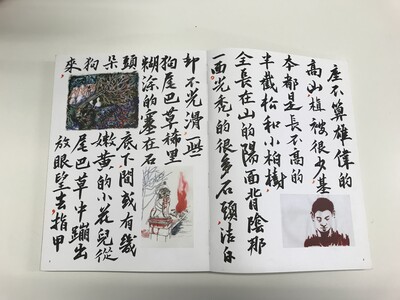 座不算雄偉的
高山植被很少基
本都是長不高的
半截松和小柏樹
全長在山的陽面背陰那
一面光禿々的很多石頭洁白
却不光滑一些
狗尾巴草稀里
糊涂的塞在石
頭底下間或有幾
朵嫩黄的小花兒從
狗尾巴草中蹦出
來放眼望去指甲